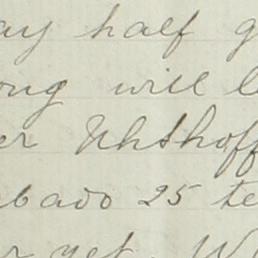 ay half g
ong will l
er Uhthoff
abado 25 te
er yet. W